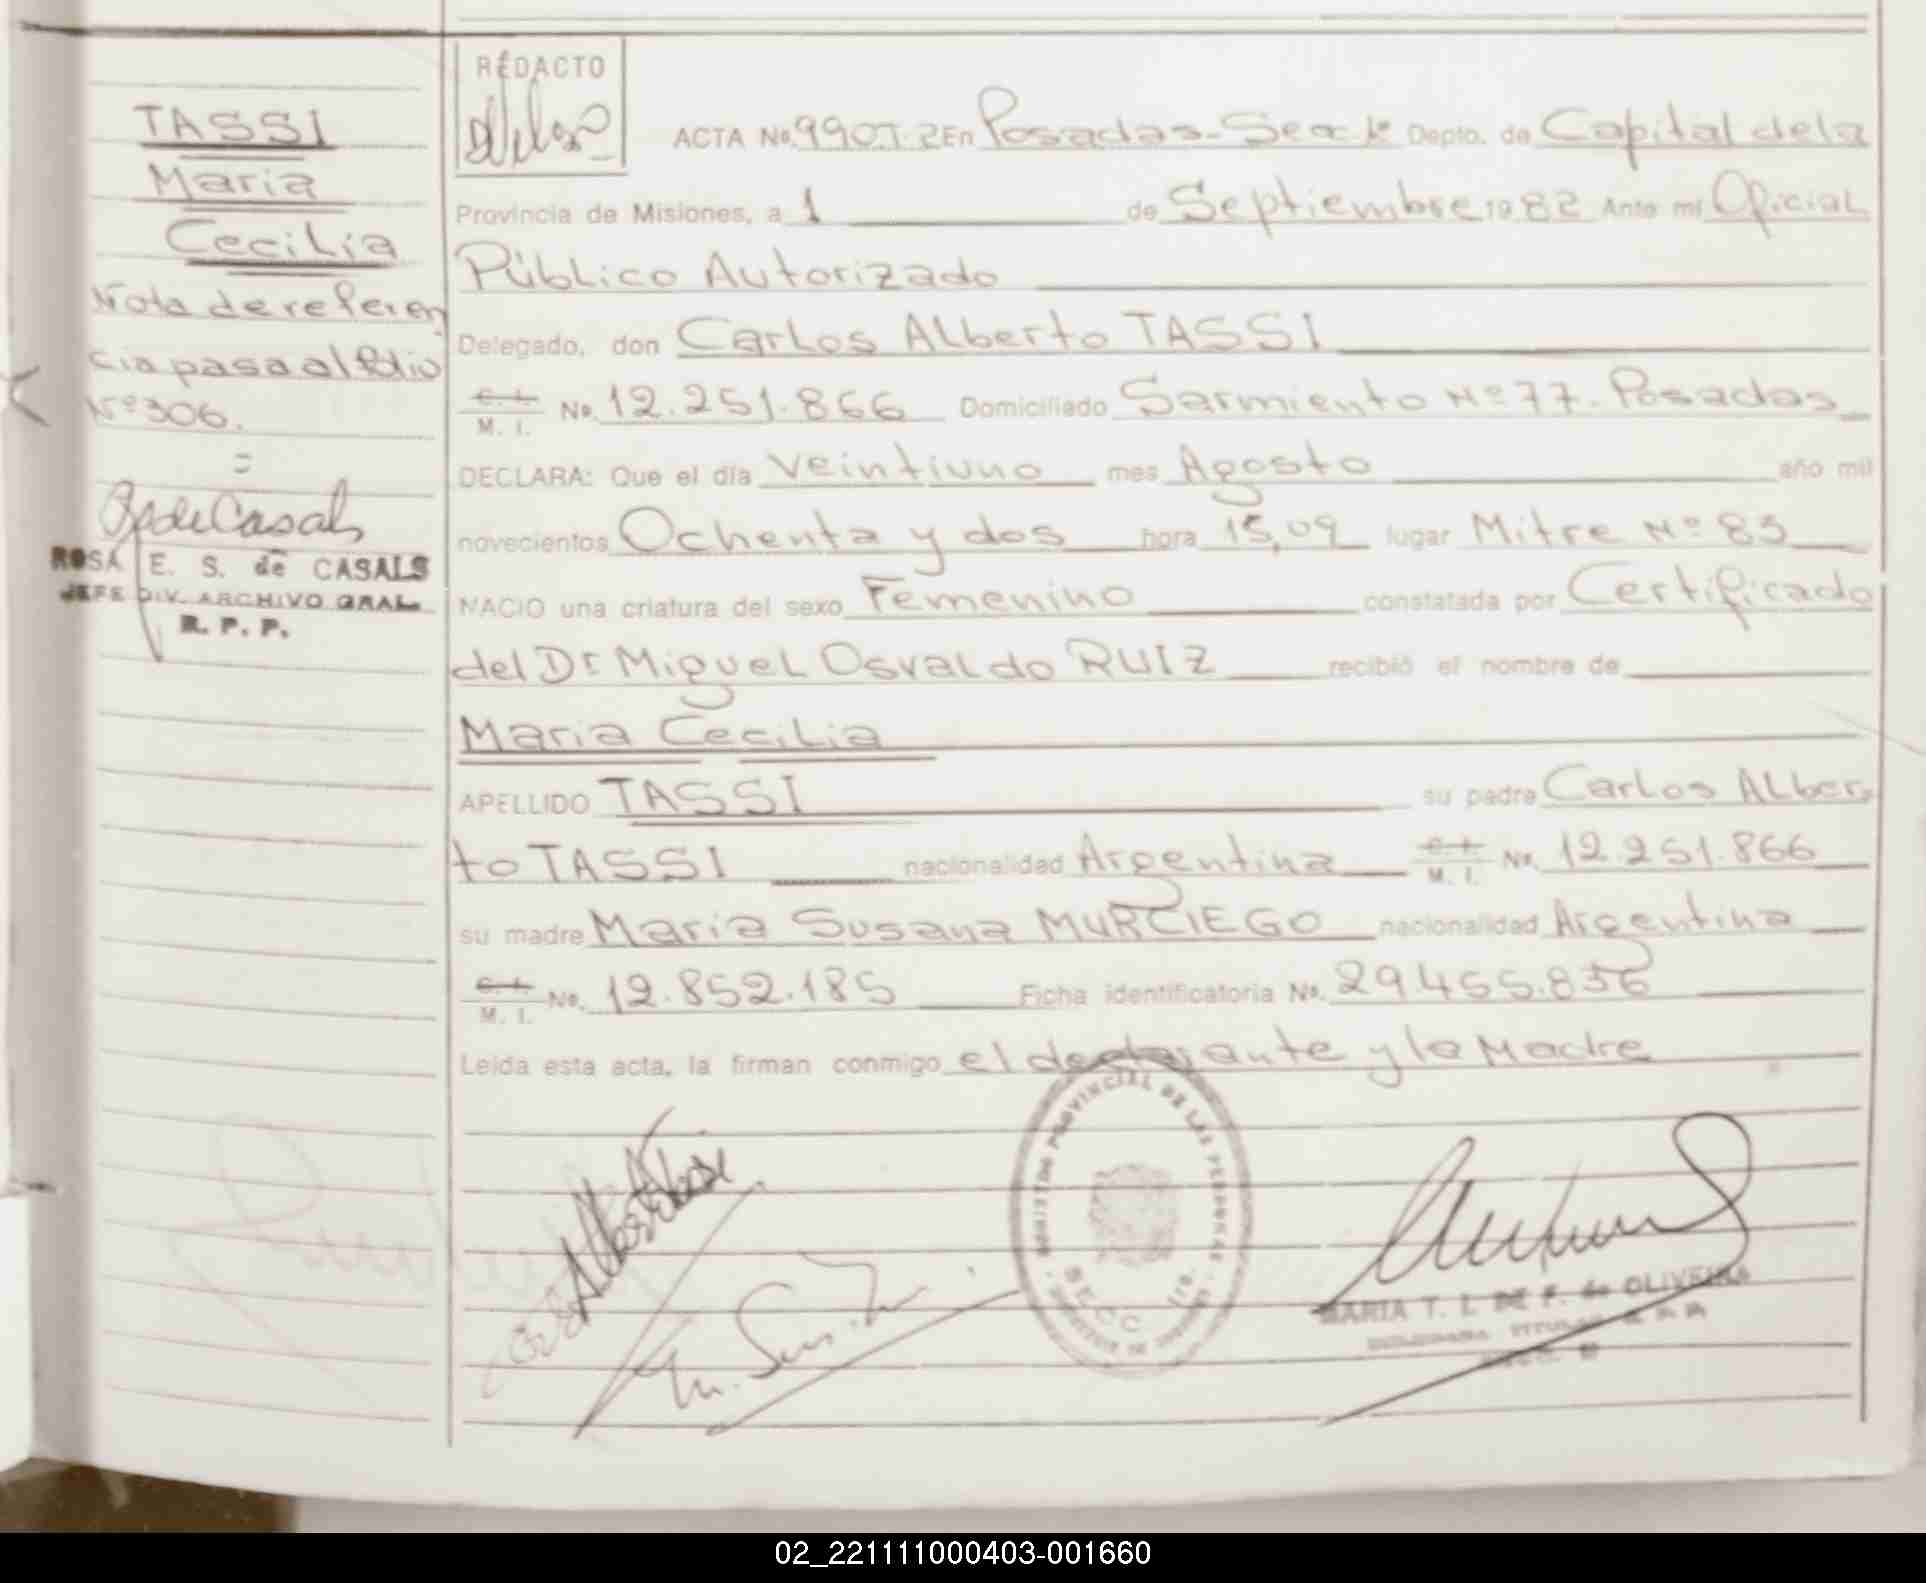 TASSI
Maria
Cecilia
Nota de referen
cia pasa al folio
Nº 306.
ROSA E. S. de CASALS
JEFE DIV. ARCHIVO GRAL.
R. P. P.
REDACTO
ACTA No. 990.T.2 En Posadas-Secc 1ª Depto. de Capital de la
Provincia de Misiones, a 1 de Septiembre 1982 Ante mí Oficial
Público Autorizado
Delegado, don Carlos Alberto TASSI
C. I. M. I. No. 12.251.866 Domiciliado Sarmiento Nº 77. Posadas
DECLARA: Que el día Veintiuno mes Agosto año mil
novecientos Ochenta y dos hora 15,09 lugar Mitre Nº 83
NACIO una criatura del sexo Femenino constatada por Certificado
del Dr Miguel Osvaldo RUIZ recibió el nombre de
Maria Cecilia
APELLIDO TASSI su padre Carlos Alber
to TASSI nacionalidad Argentina C. I. M. I. No. 12.251.866
su madre Maria Susana MURCIEGO nacionalidad Argentina
C. I. M. I. No. 12.852.185 Ficha identificatoria No. 29.455.836
Leida esta acta, la firman conmigo el declarante y la Madre
REGISTRO PROVINCIAL DE LAS PERSONAS
SECC 1ra.
MARIA T. L. DE F. de OLIVEIRA
02_221111000403-001660